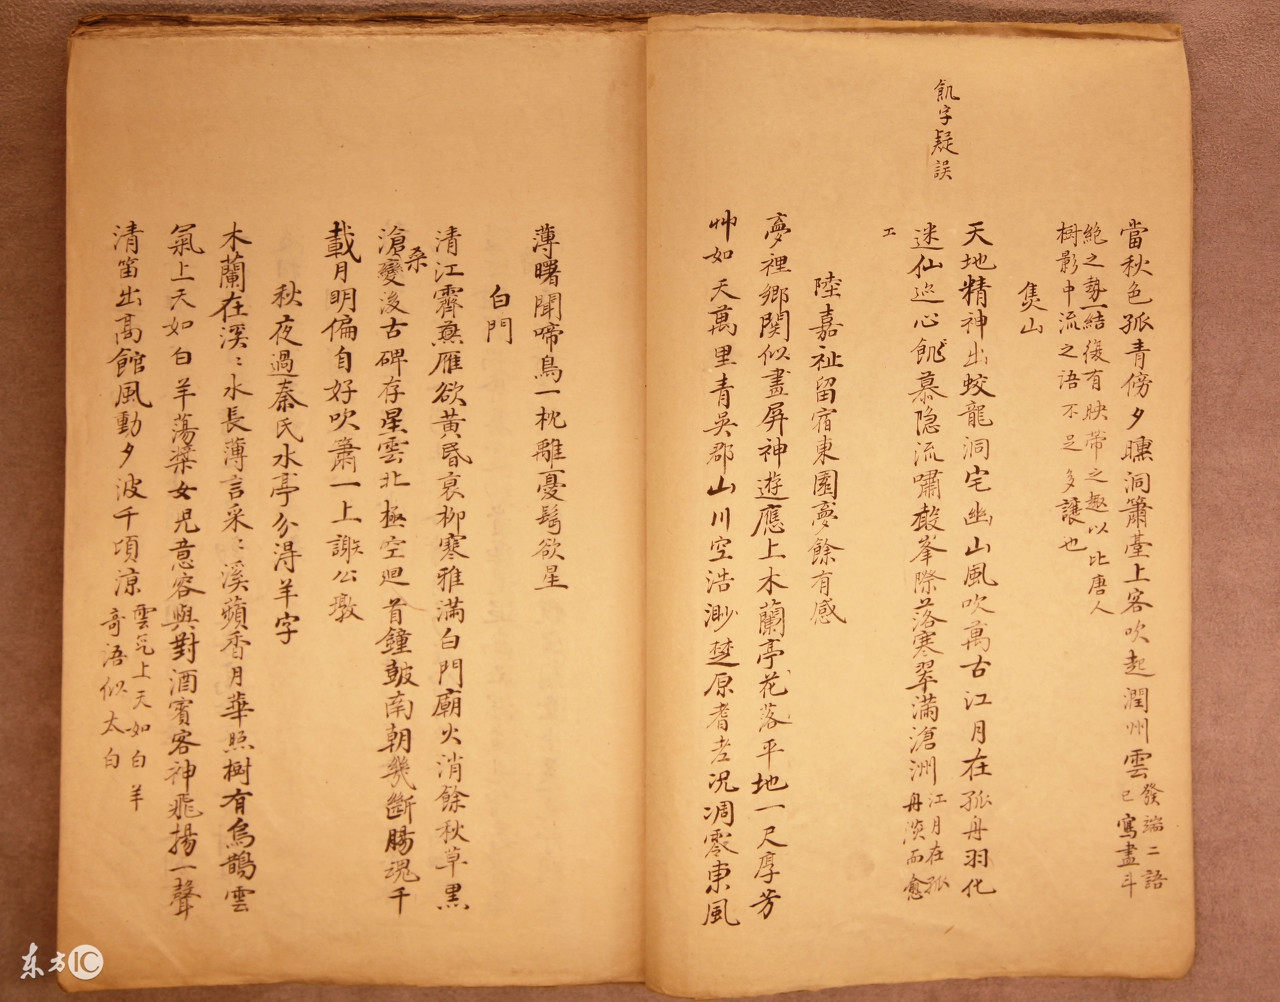 飢字疑誤
當秋色孤青傍夕曛洞簫臺上客吹起潤州雲發端二語已寫盡斗
絶之勢一結復有映帶之趣以比唐人
樹影中流之語不足多讓也
焦山
天地精神出蛟龍洞宅幽山風吹萬古江月在孤舟羽化
迷仙巡心飢慕隐流嘯敲峯際落寒翠滿滄洲江月在孤舟淡而愈
工
陸嘉祉留宿東園夢餘有感
夢裡鄉関似畫屏神遊應上木蘭亭花落平地一尺厚芳
艸如天萬里青吳郡山川空浩渺楚原耆老况凋零東風
薄曙聞啼鳥一枕離憂鬂欲星
白門
清江霽無雁欲黃昏哀柳寒雅滿白門廟火消餘秋草黑
滄桑變後古碑存星雲北極空迴首鐘皷南朝幾斷腸魂千
載月明偏自好吹簫一上謝公墩
秋夜過秦氏水亭分得羊字
木蘭在溪:水長薄言采:溪蘋香月華照樹有烏鵲雲
氣上天如白羊蕩槳女児意容與對酒賓客神飛揚一聲
清笛出高館風動夕波千頃凉雲氣上天如白羊
奇語似太白
东方IC